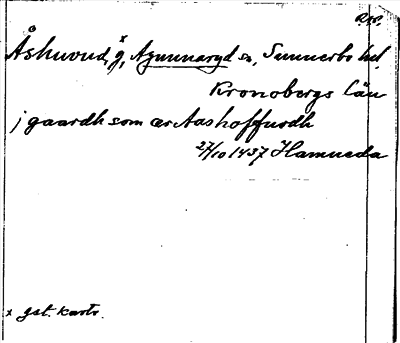 Åshuvud, x g, Agunnaryd sn, Sunnerbo hd,
Kronobergs län
j gaardh som ær Aashoffwdh
27/10 1437 Hamneda
x gst. karta.